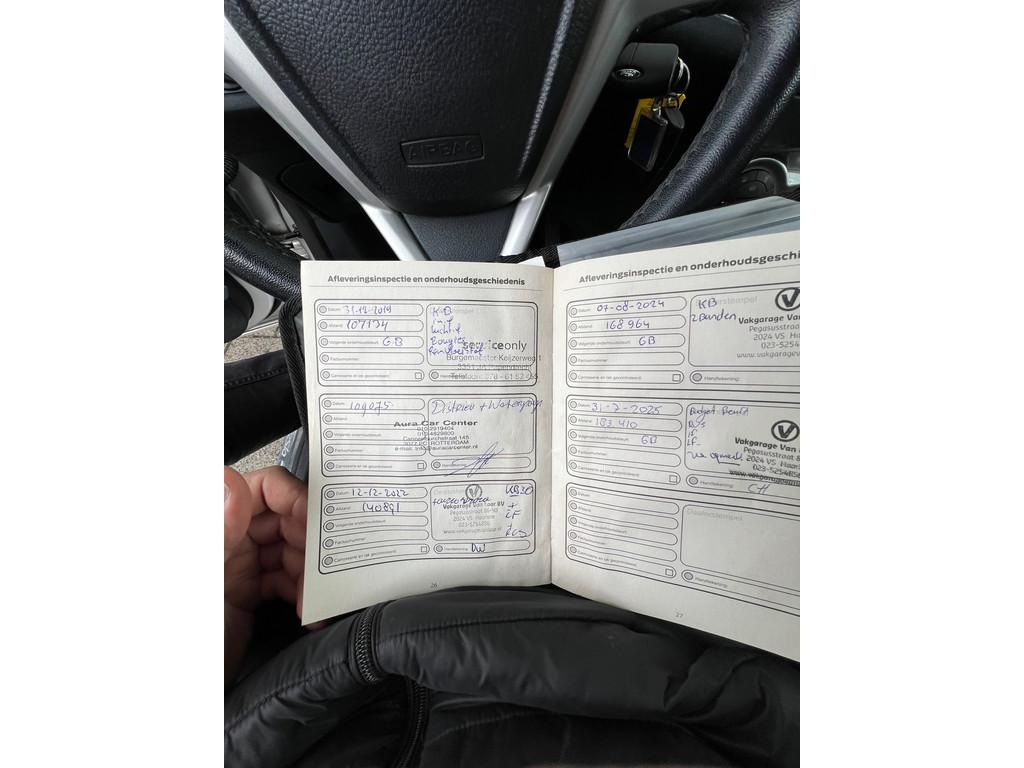 AIRBAG
Afleveringsinspectie en onderhoudsgeschiedenis
Datum: 31-12-2019
Afstand: 107134
Volgende onderhoudsbeurt: GB
Factuurnummer:
Carrosserie en lak gecontroleerd:
KB
Luchtf
Bougies
Remvloeistof
serviceonly
Burgemeester Keijzerweg 1
Papendrecht
Handtekening:
Datum: 109075
Afstand:
Volgende onderhoudsbeurt:
Factuurnummer:
Carrosserie en lak gecontroleerd:
Distrieu + Waterpomp
Aura Car Center
ROTTERDAM
Handtekening:
Datum: 12-12-2022
Afstand: 140891
Volgende onderhoudsbeurt:
Factuurnummer:
Carrosserie en lak gecontroleerd:
+
LF
+
RVS
Vakgarage Van Laar BV
Pegasusstraat
2024 VS Haarlem
023-5254856
Handtekening: DW
26
Afleveringsinspectie en onderhoudsgeschi
Datum: 07-08-2024
Afstand: 168964
Volgende onderhoudsbeurt: GB
Factuurnummer:
Carrosserie en lak gecontroleerd:
KB
2 Banden
Vakgarage Van
Pegasusstraat
2024 VS Haar
023-5254
www.vakgarageva
Handtekening:
Datum: 31-7-2025
Afstand: 183410
Volgende onderhoudsbeurt: GB
Factuurnummer:
Carrosserie en lak gecontroleerd:
Budget Beurt
RVS
IF
LF
Vakgarage Van
Pegasusstraat 8
2024 VS Haar
023-525485
Handtekening: CH
Datum:
Afstand:
Volgende onderhoudsbeurt:
Factuurnummer:
Carrosserie en lak gecontroleerd:
Dealerstempel
Handtekening:
27